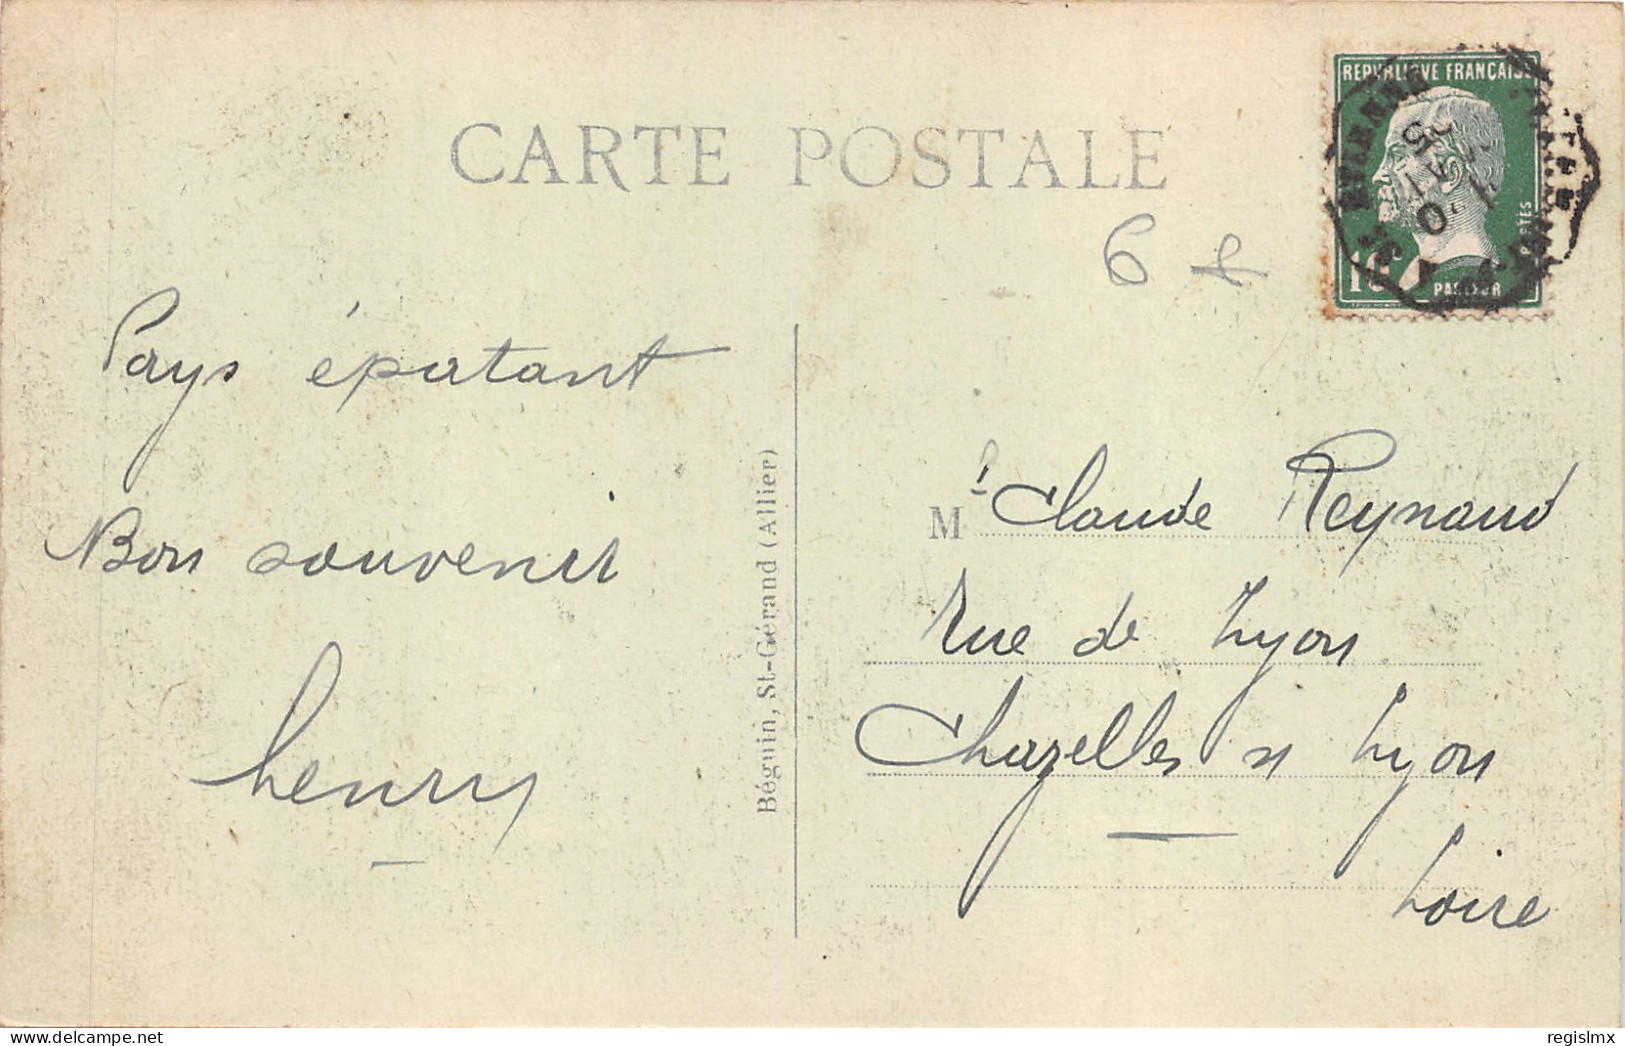 CARTE POSTALE
REPUBLIQUE FRANÇAISE
POSTES
10
PASTEUR
6 €
Pays épatant
Bon souvenir
henry
Béguin, St-Gérand (Allier)
M r Claude Reynaud
Rue de Lyon
Chazelles s/ Lyon
Loire
www.delcampe.net
regislmx